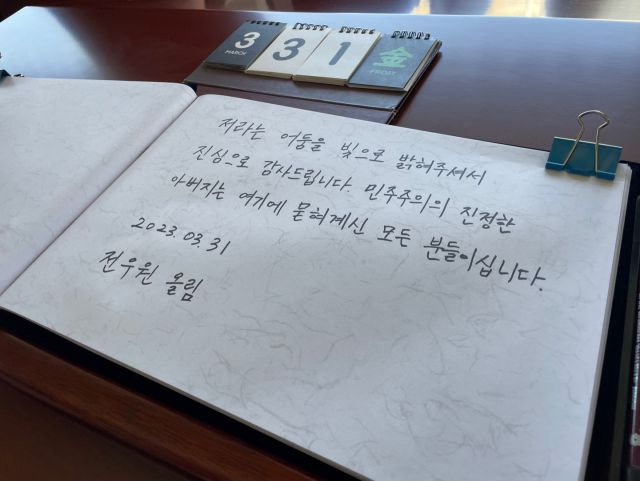 3 3 1 金
MARCH FRIDAY
저라는 어둠을 빛으로 밝혀주셔서
진심으로 감사드립니다. 민주주의의 진정한
아버지는 여기에 묻혀계신 모든 분들이십니다.
2023. 03. 31
전우원 올림